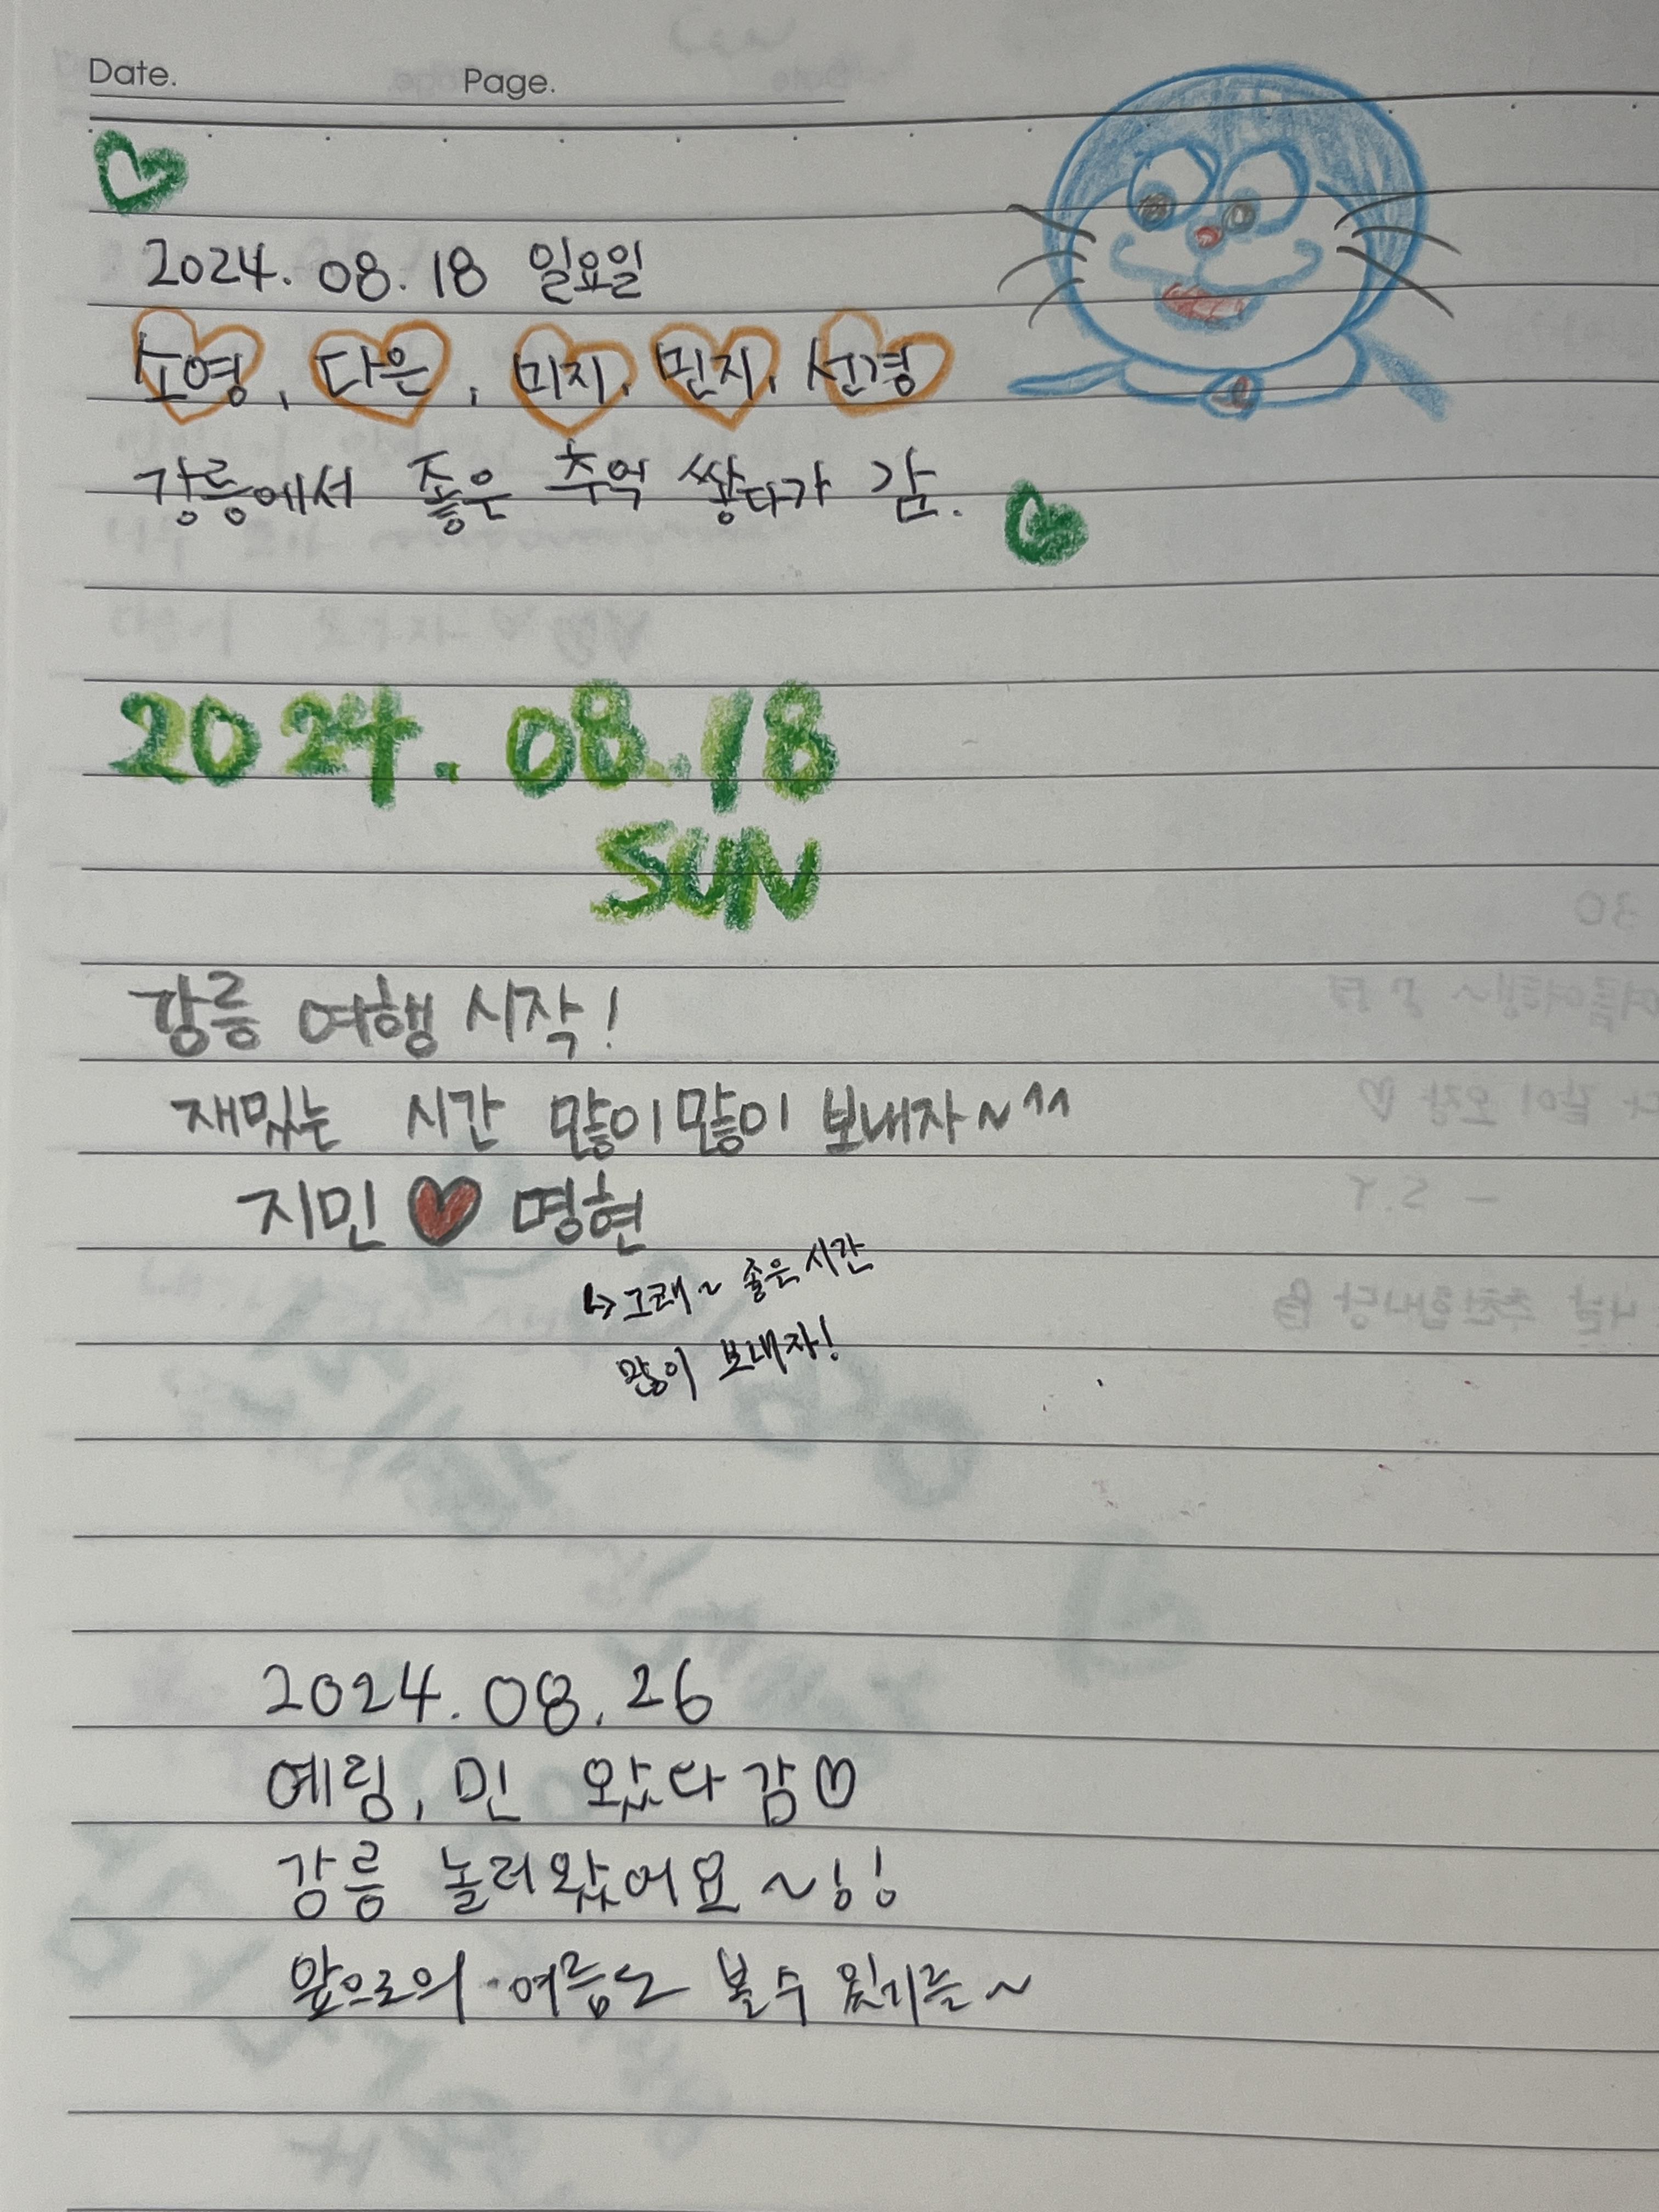 Date. Page.
2024. 08. 18 일요일
소영, 다은, 미지, 민지, 선경
강릉에서 좋은 추억 쌓다가 감.
2024. 08. 18
SUN
강릉 여행 시작!
재밌는 시간 많이많이 보내자~^^
지민 ♥ 명현
↳ 그래~ 좋은 시간
많이 보내자!
2024. 08. 26
예링, 민 왔다 감♡
강릉 놀러왔어요~!!
앞으로의 여름도 볼 수 있기를~